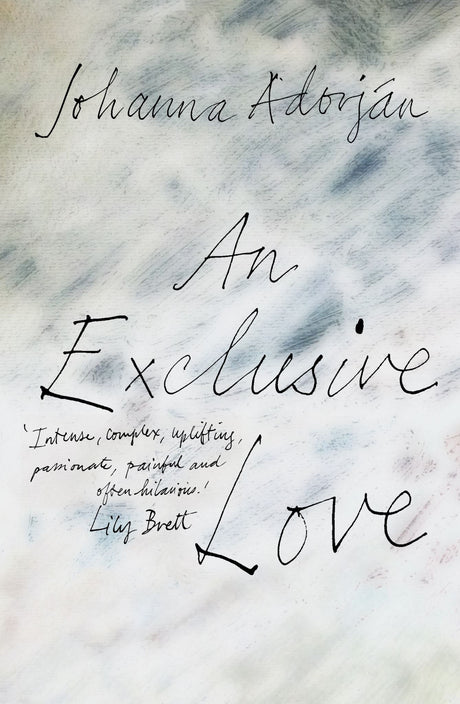 Johanna Adorján
An
Exclusive
'Intense, complex, uplifting,
passionate, painful and
often hilarious.'
Lily Brett
Love